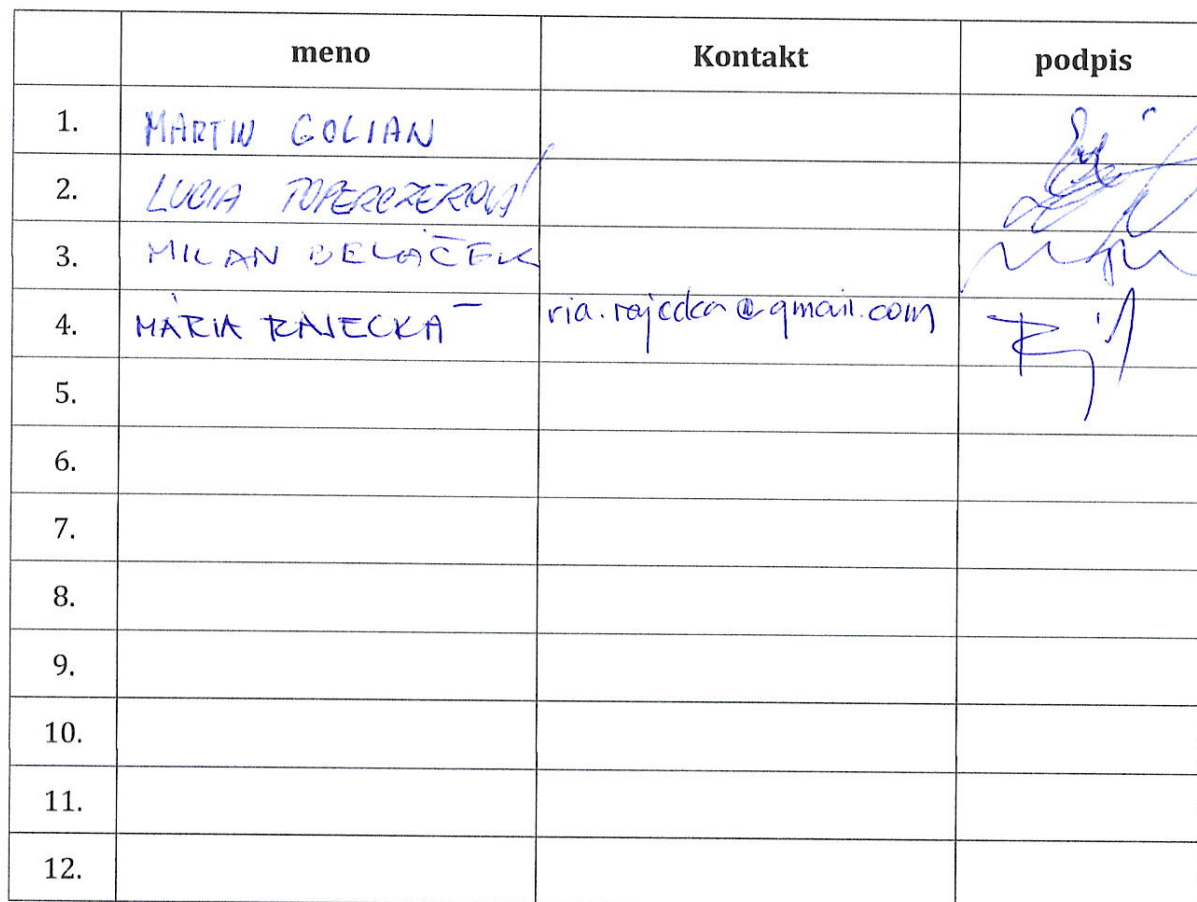 meno Kontakt podpis
1. MARTIN GOLIAN
2. LUCIA TOPERCZEROVÁ
3. MILAN BELÁČEK
4. MÁRIA RAJECKÁ ria.rajecka@gmail.com
5.
6.
7.
8.
9.
10.
11.
12.